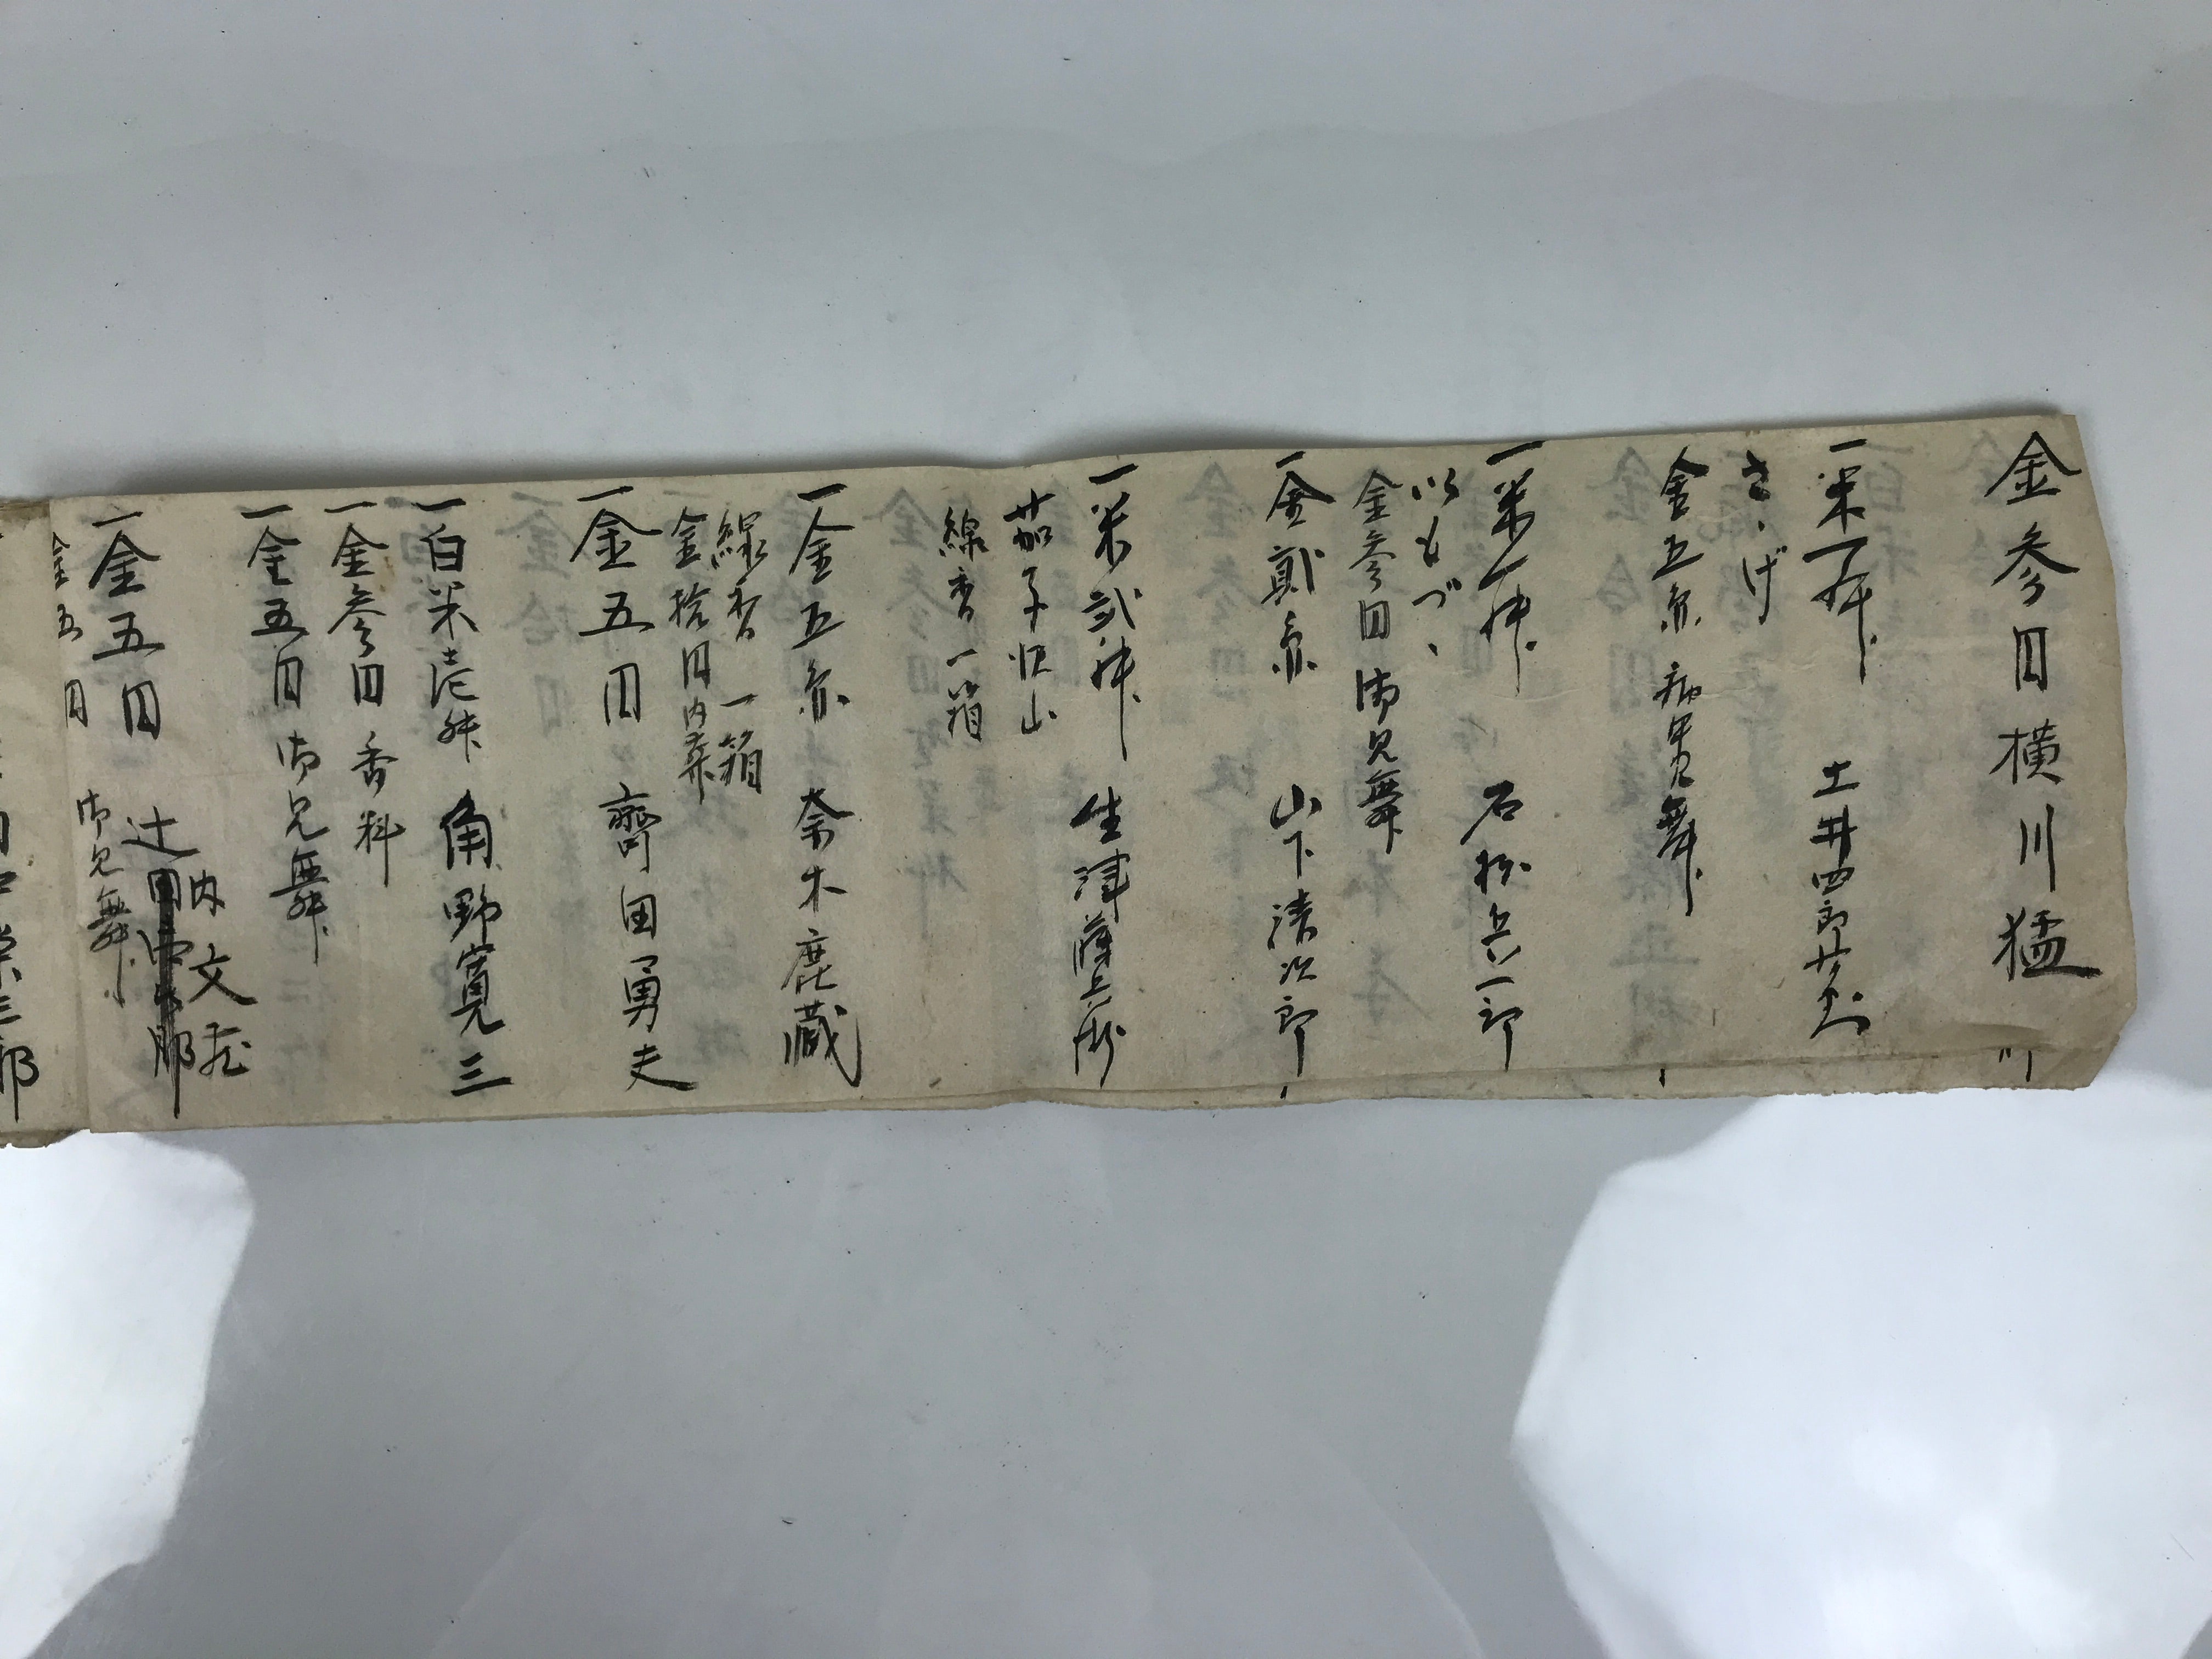 金参円横川猛
一米一升 土井四郎
さゝげ
金五円 病中見舞
一米一升 石松兵一郎
いもづゝ
金参円御見舞
一金貳円 山下清次郎
一米弐升 生津
茄子沢山
線香一箱
一金五円 奈木鹿蔵
線香一箱
金拾円内
一金五円 齊田勇夫
一白米壱升 角野寛三
一金参円香料
一金五円御見舞
内文
一金五円 辻
御見舞
金五円